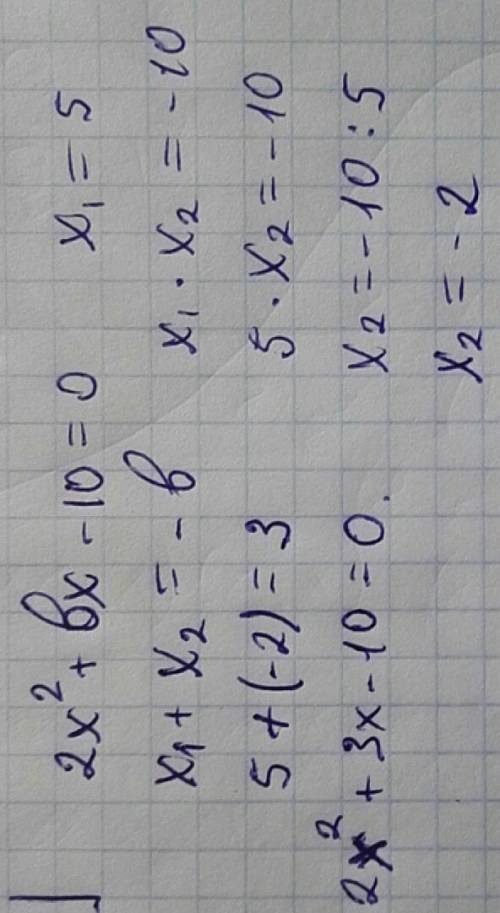 2x² + bx - 10 = 0    x₁ = 5
x₁ + x₂ = - b    x₁ · x₂ = - 10
5 + (-2) = 3    5 · x₂ = - 10
2x² + 3x - 10 = 0.    x₂ = - 10 : 5
x₂ = - 2